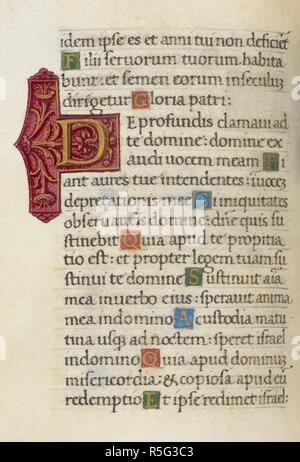 idem ipse es et anni tui non deficiēt
Filii seruorum tuorum habita
bunt: et semen eorum inseculū
dirigetur Gloria patri:
De profundis clamaui ad
te domine: domine ex
audi uocem meam Fi
ant aures tue intendentes: iuocē
deprecationis mee Si iniquitates
obseruaueris domine: dñe quis su
stinebit Quia apud te propitia
tio est: et propter legem tuam su
stinui te domine Sustinuit aīa
mea inuerbo eius: sperauit anima
mea indomino A custodia matu
tina usq; ad noctem: speret israel
indomino Quia apud dominum
misericordia: & copiosa apud eū
redemptio Et ipse redimet israel:
alamy
Image ID: R5G3C3
www.alamy.com